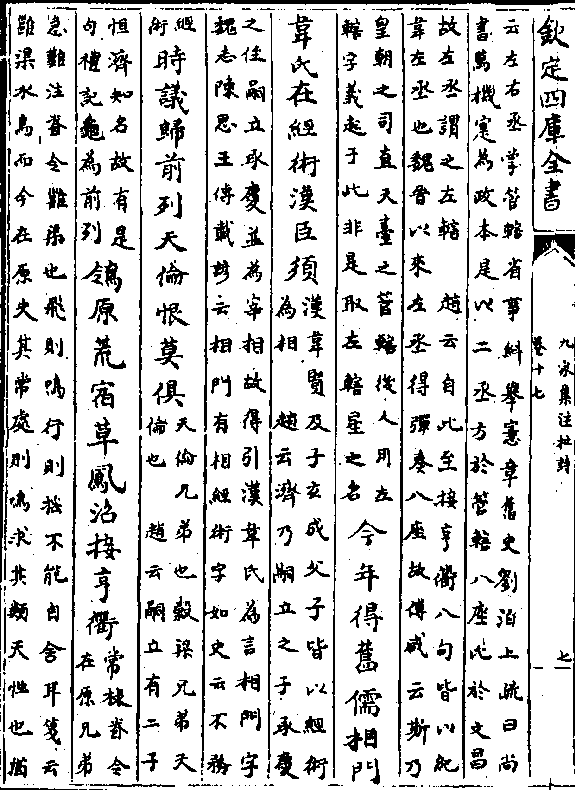 欽定四庫全書
九家集注杜詩
卷十七
七
云左右丞掌管轄省事糾舉憲章舊史劉洎上疏曰尚
書萬機寔為政本是以二丞方於管轄八座比於文昌
故左丞謂之左轄　趙云自此至接亨衢八句皆以紀
韋左丞也魏晉以來左丞得彈奏八座故傅咸云斯乃
皇朝之司直天臺之管轄後人用左
轄字義起于此非是取左轄星之名
今年得舊儒相門
韋氏在經術漢臣須
漢韋賢及子玄成父子皆以經術
為相　趙云濟乃嗣立之子承慶
之侄嗣立承慶並為宰相故得引漢韋氏為言相門字
魏志陳思王傳載諺云相門有相經術字如史云不務
經
術
時議歸前列天倫恨莫俱
天倫兄弟也穀梁兄弟天
倫也　趙云嗣立有二子
恒濟知名故有是
句禮記龜為前列
鴒原荒宿草鳳沼接亨衢
常棣脊令
在原兄弟
急難注脊令雝渠也飛則鳴行則搖不能自舍耳箋云
雝渠水鳥而今在原失其常處則鳴求其類天性也猶